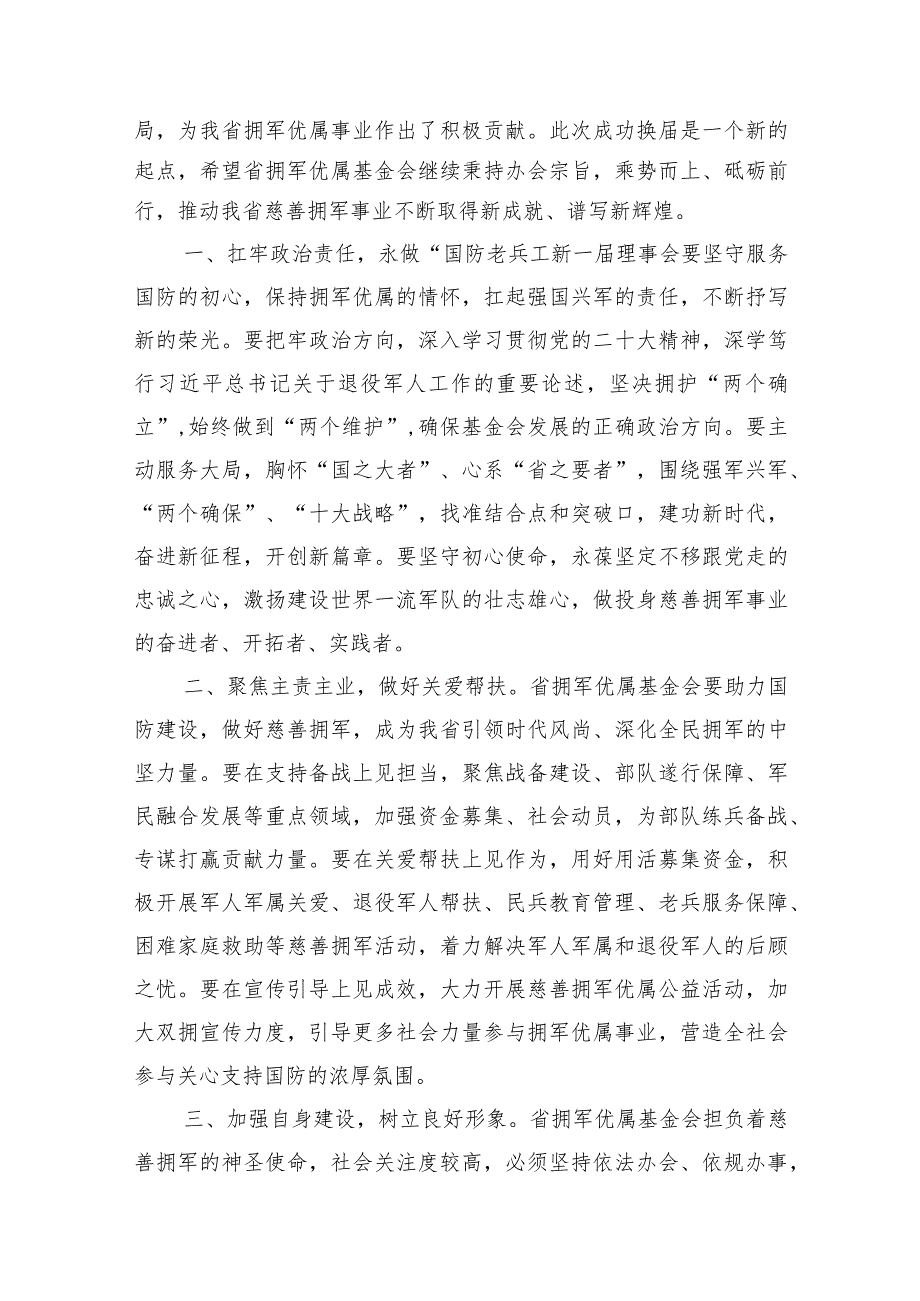 局，为我省拥军优属事业作出了积极贡献。此次成功换届是一个新的
起点，希望省拥军优属基金会继续秉持办会宗旨，乘势而上、砥砺前
行，推动我省慈善拥军事业不断取得新成就、谱写新辉煌。
一、扛牢政治责任，永做“国防老兵工新一届理事会要坚守服务
国防的初心，保持拥军优属的情怀，扛起强国兴军的责任，不断抒写
新的荣光。要把牢政治方向，深入学习贯彻党的二十大精神，深学笃
行习近平总书记关于退役军人工作的重要论述，坚决拥护“两个确
立”,始终做到“两个维护”,确保基金会发展的正确政治方向。要主
动服务大局，胸怀“国之大者”、心系“省之要者”，围绕强军兴军、
“两个确保”、“十大战略”，找准结合点和突破口，建功新时代，
奋进新征程，开创新篇章。要坚守初心使命，永葆坚定不移跟党走的
忠诚之心，激扬建设世界一流军队的壮志雄心，做投身慈善拥军事业
的奋进者、开拓者、实践者。
二、聚焦主责主业，做好关爱帮扶。省拥军优属基金会要助力国
防建设，做好慈善拥军，成为我省引领时代风尚、深化全民拥军的中
坚力量。要在支持备战上见担当，聚焦战备建设、部队遂行保障、军
民融合发展等重点领域，加强资金募集、社会动员，为部队练兵备战、
专谋打赢贡献力量。要在关爱帮扶上见作为，用好用活募集资金，积
极开展军人军属关爱、退役军人帮扶、民兵教育管理、老兵服务保障、
困难家庭救助等慈善拥军活动，着力解决军人军属和退役军人的后顾
之忧。要在宣传引导上见成效，大力开展慈善拥军优属公益活动，加
大双拥宣传力度，引导更多社会力量参与拥军优属事业，营造全社会
参与关心支持国防的浓厚氛围。
三、加强自身建设，树立良好形象。省拥军优属基金会担负着慈
善拥军的神圣使命，社会关注度较高，必须坚持依法办会、依规办事，